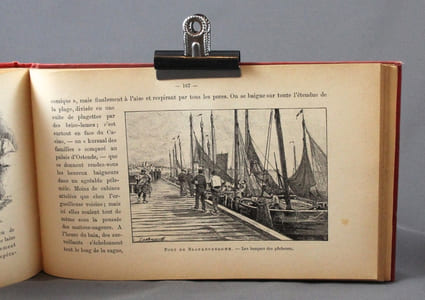 — 167 —
comique », mais finalement à l'aise et respirant par tous les pores. On se baigne sur toute l'étendue de
la plage, divisée en une
suite de plagettes par
des brise-lames ; c'est
surtout en face du Ca-
sino, — un « kursaal des
familles » comparé au
palais d'Ostende, — que
se donnent rendez-vous
les heureux baigneurs
dans un agréable pêle-
mêle. Moins de cabines
attelées que chez l'or-
gueilleuse voisine ; mais
ici elles roulent tout de
même sous la poussée
des maîtres-nageurs. A
l'heure du bain, des sur-
veillants s'échelonnent
tout le long de la vague,
Port de Blankenberghe. — Les barques des pêcheurs.